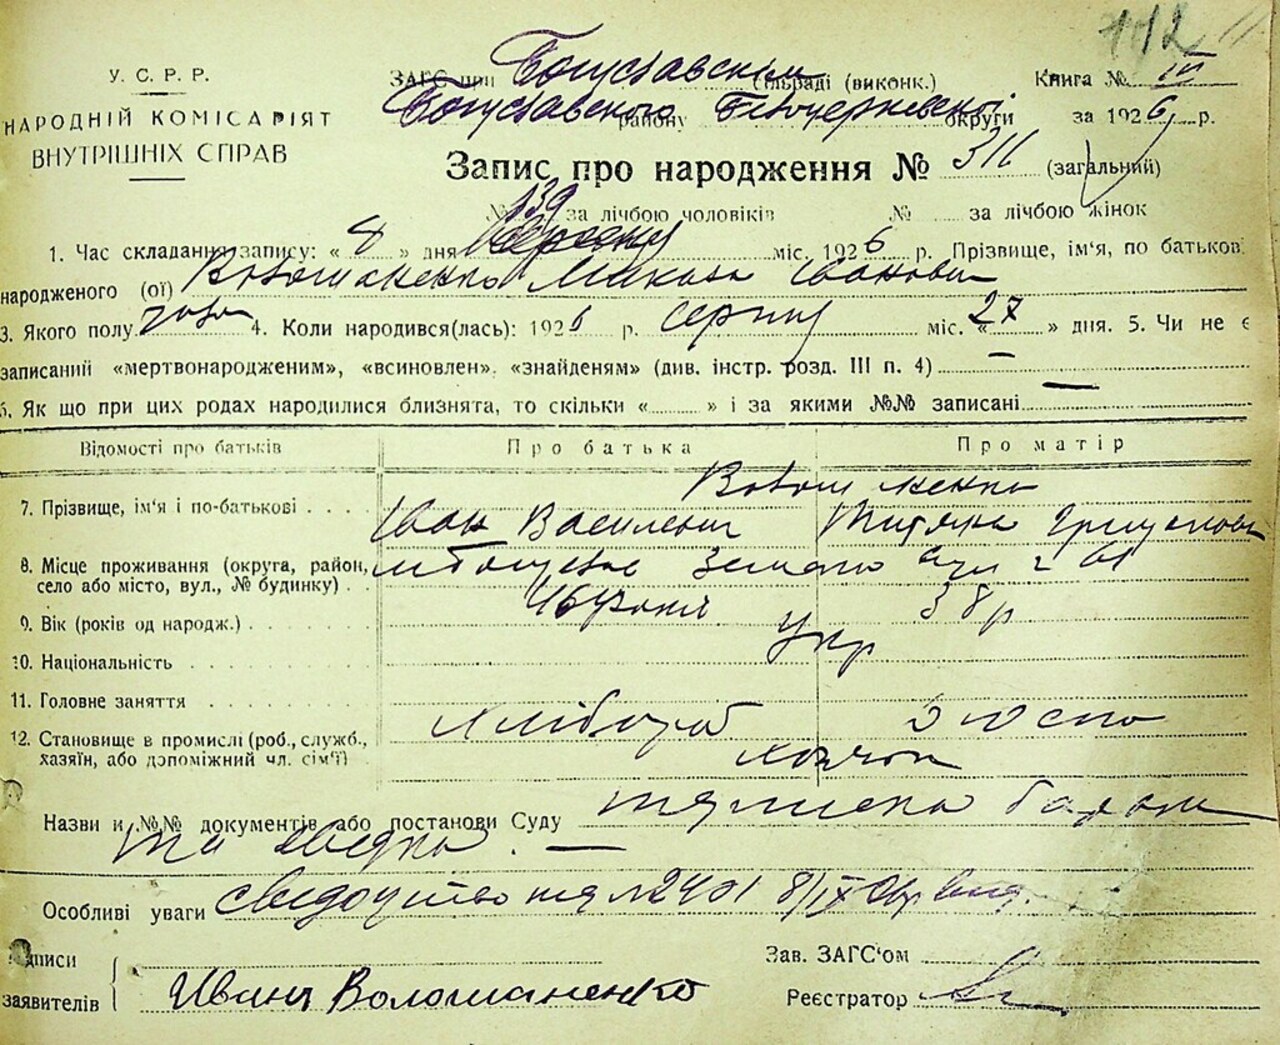 112
У. С. Р. Р.
НАРОДНІЙ КОМІСАРІЯТ
ВНУТРІШНІХ СПРАВ
ЗАГС при Богуславскім сільраді (виконк.) Книга № III
Богуславского району Білоцерківскої округи за 1926 р.
Запис про народження № 316 (загальний)
№ 139 за лічбою чоловіків № за лічбою жінок
1. Час складання запису: « 8 » дня Вересня міс. 1926 р. Прізвище, ім'я, по батькові
народженого (ої) Волошаненко Микола Іванович
3. Якого полу 4. Коли народився(лась): 1926 р. серпня міс. « 27 » дня. 5. Чи не є
записаний «мертвонародженим», «всиновлен», «знайденям» (див. інстр. розд. III п. 4) —
6. Як що при цих родах народилися близнята, то скільки « » і за якими №№ записані —
Відомості про батьків Про батька Про матір
Волошаненко
7. Прізвище, ім'я і по-батькові Іван Василевич
8. Місце проживання (округа, район, м Богуслав
село або місто, вул., № будинку)
9. Вік (років од народж.) 46 38 р
10. Національність Укр
11. Головне заняття
хлібороб
12. Становище в промислі (роб., служб.,
хазяїн, або допоміжний чл. сім'ї)
Назви и №№ документів або постанови Суду
та свідка. —
Особливі уваги свідоцтво 2401 8/IX
Підписи Зав. ЗАГС'ом
заявителів Иванъ Волошаненко Реєстратор